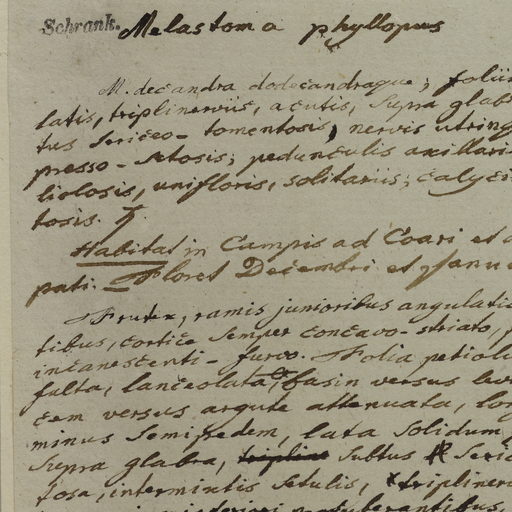 Schrank. Melastoma phyllopus
M. decandra dodecandraque; foliis
latis, triplinerviis, acutis, supra glab
tus sericeo-tomentosis, nervis utrinq
presso-setosis; pedunculis axillari
liolosis, unifloris, solitariis; calyci
tosis. ♄.
Habitat in Campis ad Coari et
pati. Floret Decembri et Janua
Frutex, ramis junioribus angulatis
tibus, cortice semper concavo-striato,
incanescenti-furvo. Folia petiolu
fulta, lanceolata, basin versus
cem versus argute attenuata, lon
minus semipedem, lata solidum
supra glabra, tripline subtus seric
tosa, intermixtis setulis, triplinerv
protuberantibus,